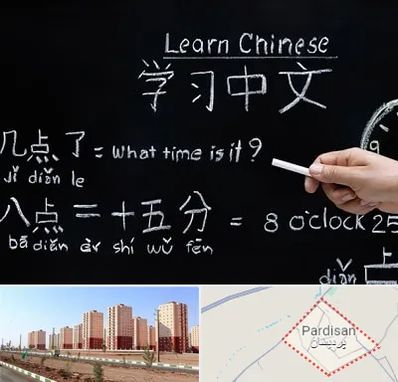 Learn Chinese
学习中文
几点了 = What time is it?
Jǐ diǎn le
八点二十五分 = 8 o'clock 25
bā diǎn èr shí wǔ fēn
diǎn
9
Pardisan
پردیسان